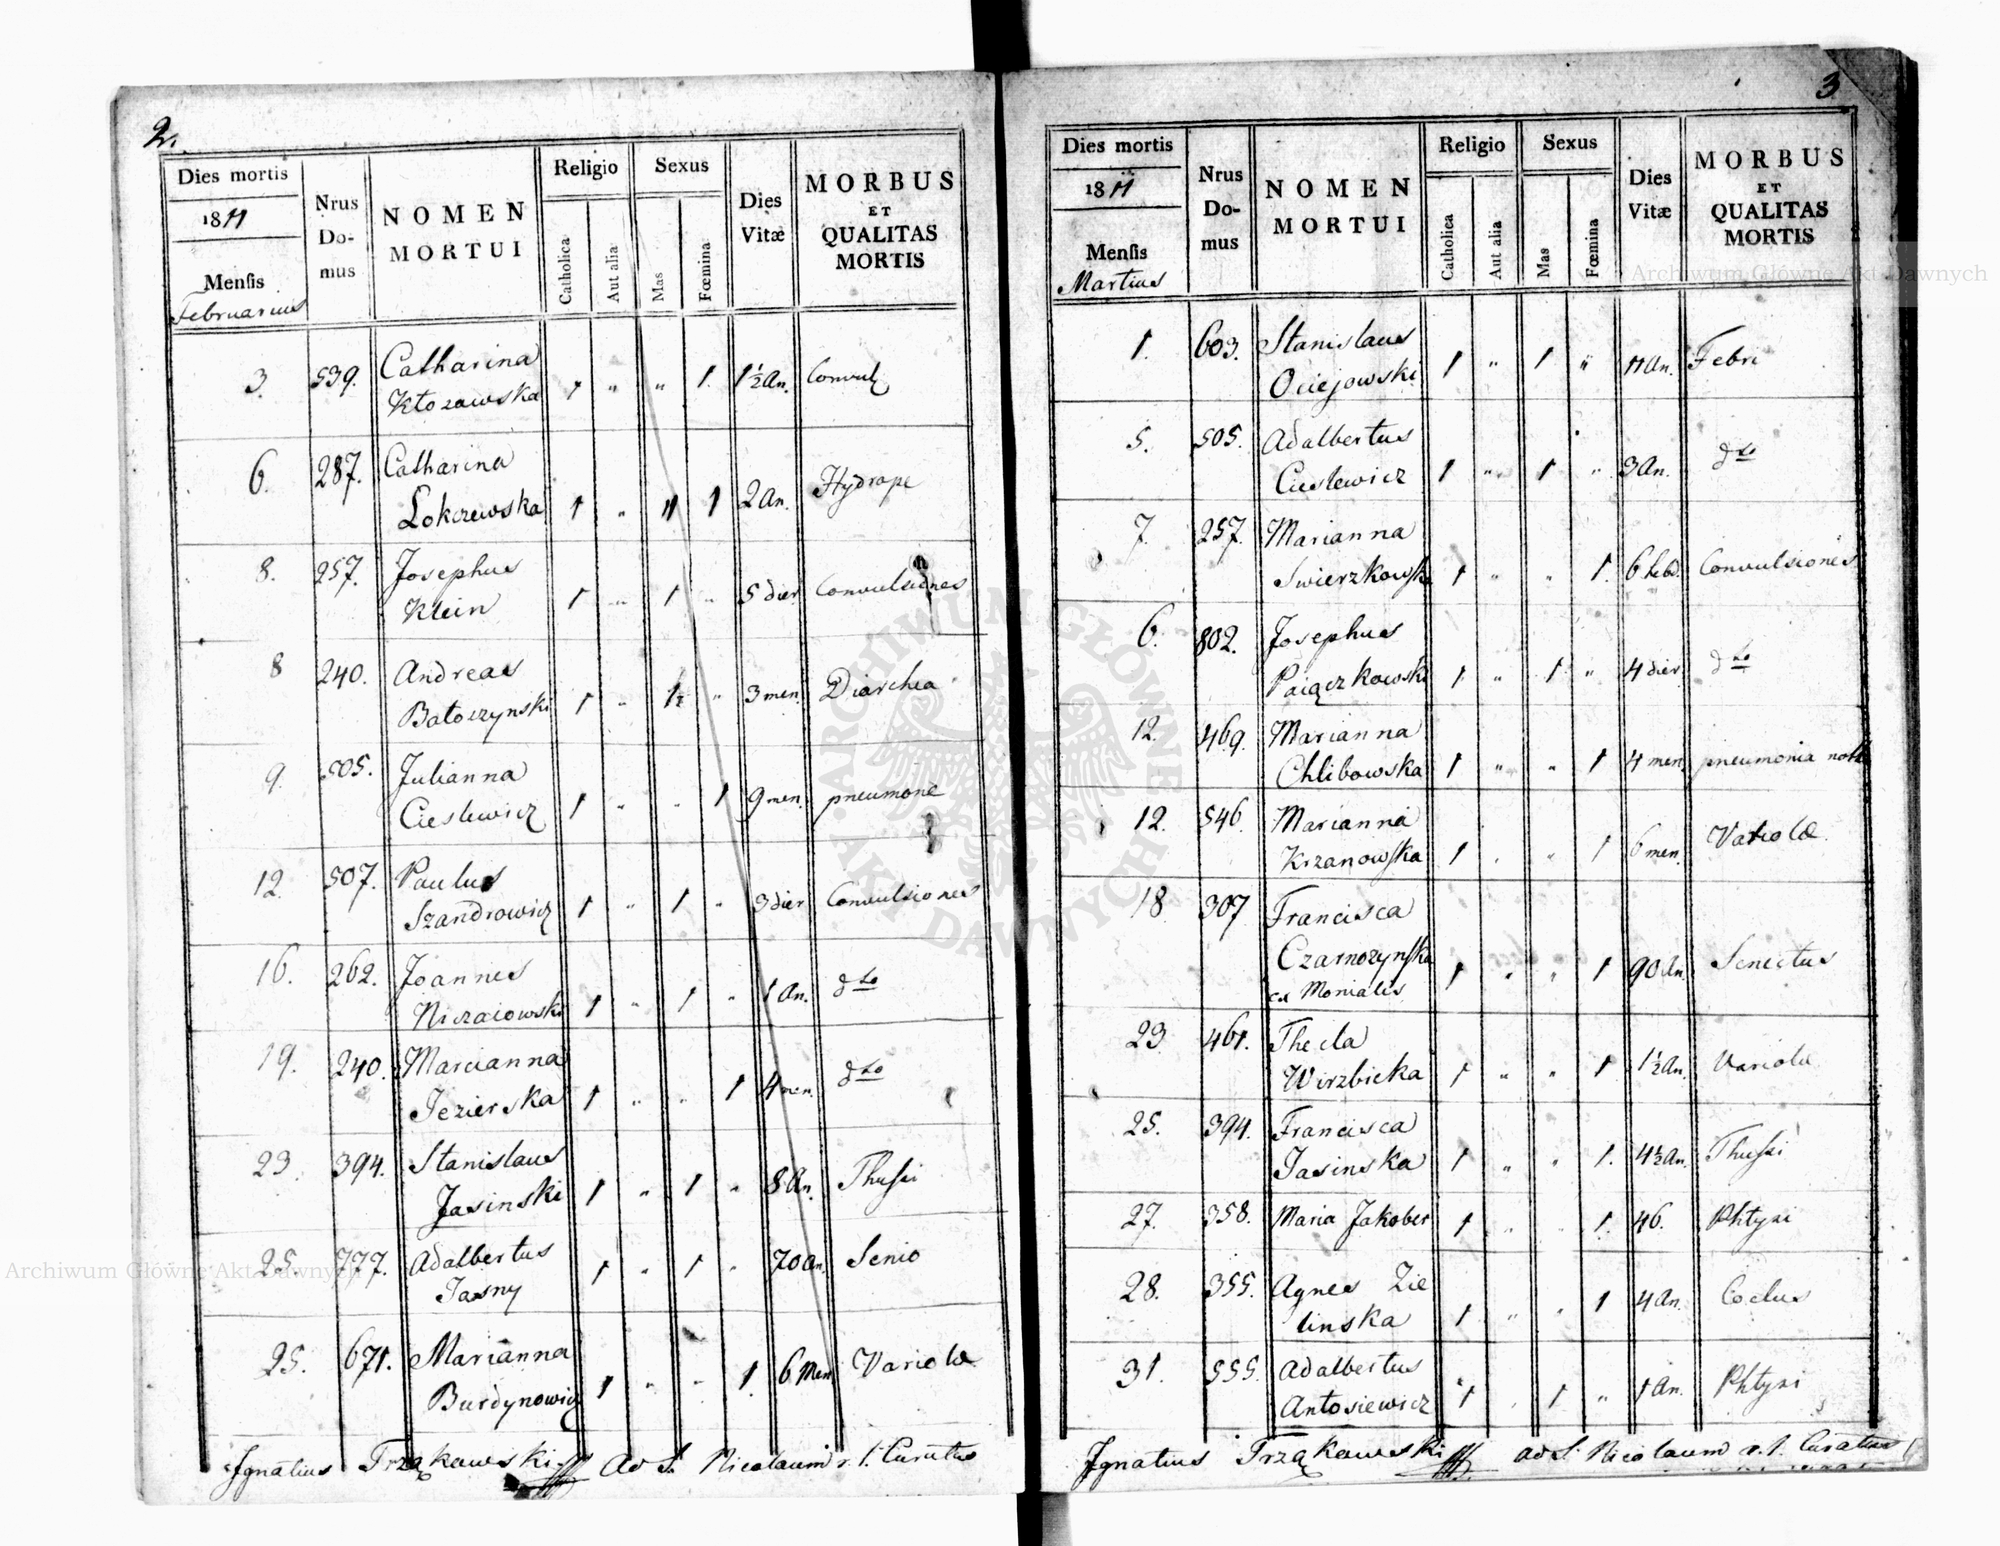 2.
Dies mortis
1811
Mensis
Februarius
Nrus Do- mus
NOMEN
MORTUI
Religio
Catholica
Aut alia
Sexus
Mas
Fœmina
Dies Vitæ
MORBUS
ET
QUALITAS
MORTIS
3. 539. Catharina
Kłozowska 1 " " 1. 1½ An. Convul
6. 287. Catharina
Lokczewska 1 " " 1 2 An. Hydrope
8. 257. Josephus
Klein 1 " 1 " 5 dier Convulsiones
8 240. Andreas
Batoczynski 1 " 1 " 3 men. Diarchea
9. 505. Julianna
Cieslewicz 1 " " 1 9 men. pneumone
12 507. Paulus
Szandrowicz 1 " 1 " 3 dier Convulsiones
16. 262. Joannes
Niczaiowski 1 " 1 " 1 An. dto
19. 240. Marcianna
Jezierska 1 " " 1 4 men. dto
23. 394. Stanislaus
Jasinski 1 " 1 " 8 An. Thussi
25. 777. Adalbertus
Jasny 1 " 1 " 70 an. Senio
25. 671. Marianna
Burdynowicz 1 " " 1. 6 Men Variolæ
Ignatius Trząkawski Ad S. Nicolaum r. l. Curatus
3
Dies mortis
1811
Mensis
Martius
Nrus Do- mus
NOMEN
MORTUI
Religio
Catholica
Aut alia
Sexus
Mas
Fœmina
Dies Vitæ
MORBUS
ET
QUALITAS
MORTIS
1. 603. Stanislaus
Ociejowski 1 " 1 " 11 An. Febri
5. 505. Adalbertus
Cieslewicz 1 " 1 " 3 An. dto
7. 257. Marianna
Swierzkowsk 1 " " 1. 6 hebd. Convulsiones
6. 802. Josephus
Paiączkowski 1 " 1 " 4 dier dto
12. 469. Marianna
Chlibowska 1 " " 1 4 men. pneumonia
12. 546. Marianna
Krzanowska 1 " " 1 6 men. Variolæ
18 307 Francisca
Czarnozynska
ex Monialis 1 " " 1 90 An. Senectus
23 461. Thecla
Wirzbicka 1 " " 1 1½ An. Variola
25. 394. Francisca
Jasinska 1 " " 1. 4½ An. Thussi
27. 358. Maria Jakober 1 " " 1. 46. Phtysi
28. 355. Agnes Zie
linska 1 " " 1 4 An. Coclus
31. 555. Adalbertus
Antosiewicz 1 " 1 " 1 An. Phtysi
Ignatius Trząkawski ad S. Nicolaum r. l. Curatus
Archiwum Główne Akt Dawnych
Archiwum Główne Akt Dawnych
ARCHIWUM GŁÓWNE AKT DAWNYCH